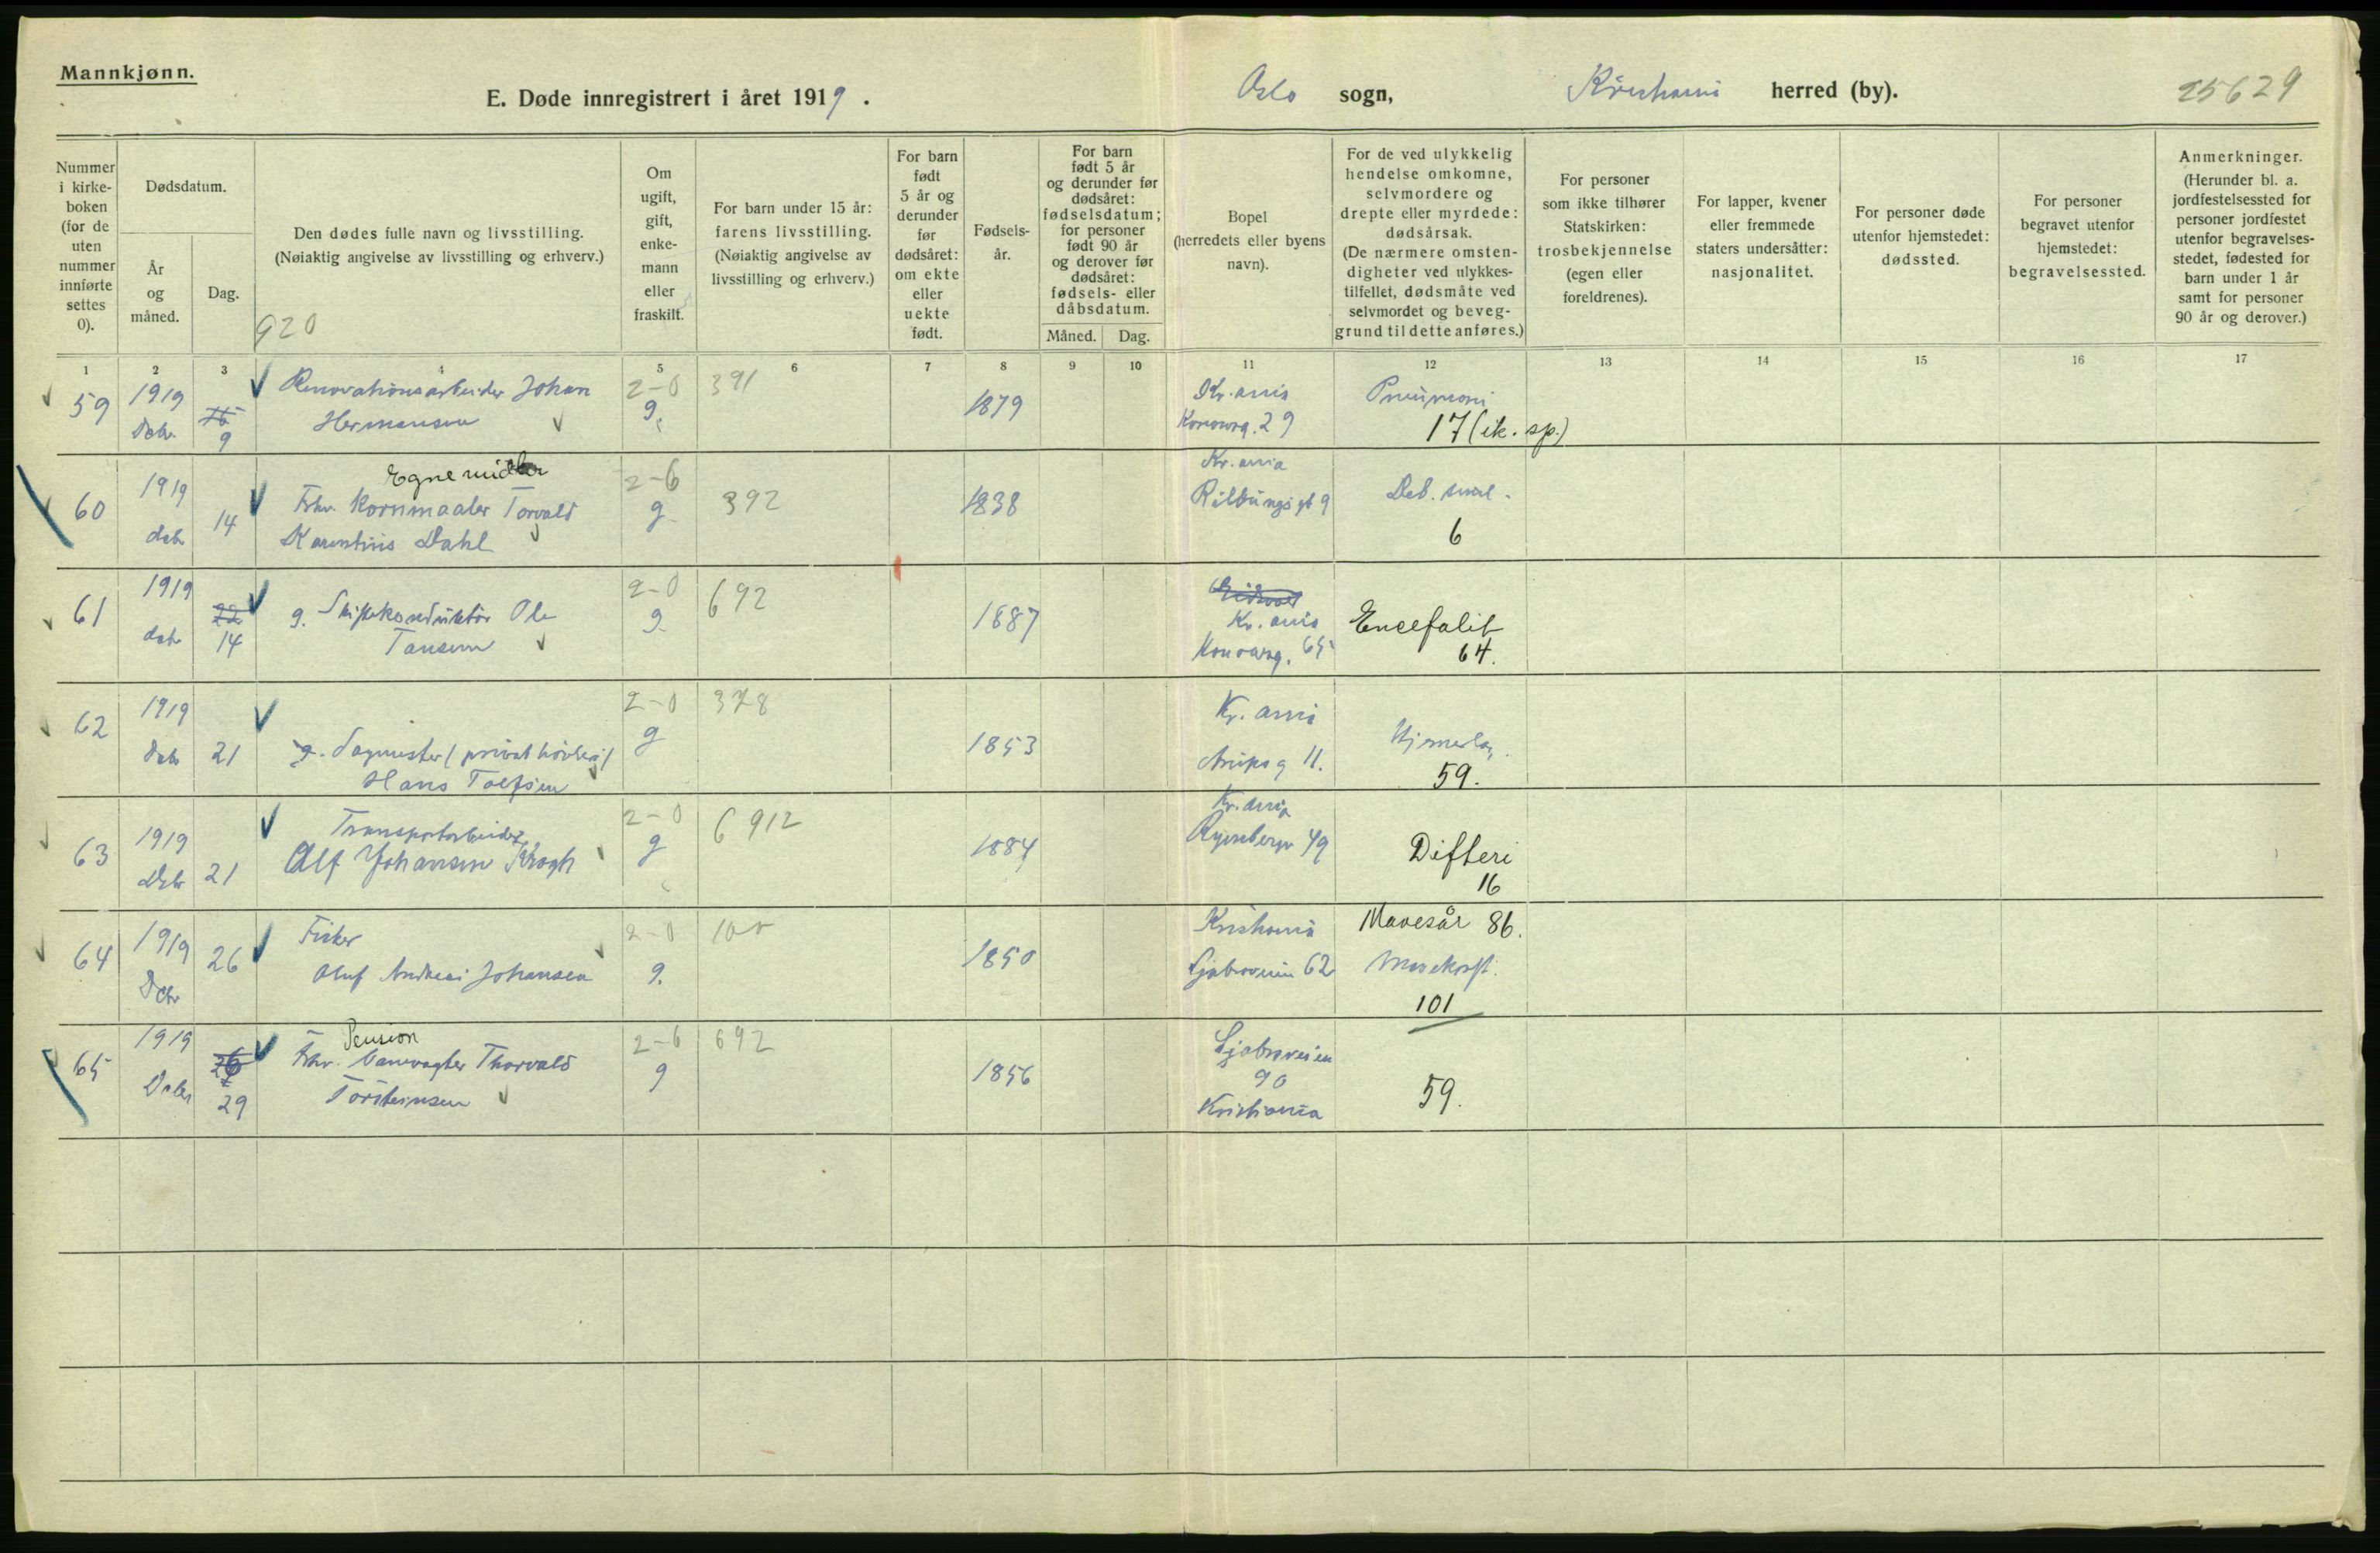 Mannkjønn.
E. Døde innregistrert i året 1919.
Oslo sogn, herred (by).
25629
Nummer i kirke-boken (for de uten nummer innførte settes 0).
Dødsdatum.
År og måned.
Dag.
Den dødes fulle navn og livsstilling.
(Nøiaktig angivelse av livsstilling og erhverv.)
920
Om ugift, gift, enke-mann eller fraskilt.
For barn under 15 år: farens livsstilling.
(Nøiaktig angivelse av livsstilling og erhverv.)
For barn født 5 år og derunder før dødsåret: om ekte eller uekte født.
Fødsels-år.
For barn født 5 år og derunder før dødsåret: fødselsdatum; for personer født 90 år og derover før dødsåret: fødsels- eller dåbsdatum.
Måned. Dag.
Bopel (herredets eller byens navn).
For de ved ulykkelig hendelse omkomne, selvmordere og drepte eller myrdede: dødsårsak.
(De nærmere omsten-digheter ved ulykkes-tilfellet, dødsmåte ved selvmordet og beveg-grund til dette anføres.)
For personer som ikke tilhører Statskirken: trosbekjennelse (egen eller foreldrenes).
For lapper, kvener eller fremmede staters undersåtter: nasjonalitet.
For personer døde utenfor hjemstedet: dødssted.
For personer begravet utenfor hjemstedet: begravelsessted.
Anmerkninger.
(Herunder bl. a. jordfestelsessted for personer jordfestet utenfor begravelses-stedet, fødested for barn under 1 år samt for personer 90 år og derover.)
1 2 3 4 5 6 7 8 9 10 11 12 13 14 15 16 17
59 1919 Debr. 9 Renovationsarbeider Johan Hermansen 2-0 g. 391 1879 Kr.ania Konowsg. 29 Pneumoni 17 (ik. sp.)
60 1919 debr 14 Egne midler Fhv. Kornmaaler Torvald Dahl 2-6 g 392 1838 Kr.ania 9 Deb. senil. 6
61 1919 debr 14 g. Ole 2-0 g 692 1887 Kr.ania Konowsg. 65 Encefalit 64.
62 1919 Debr 21 g. Sagmester Hans Tolfsen 2-0 g 378 1853 Kr.ania 11. 59.
63 1919 Debr 21 Transportarbeider Alf Johansen Krogh 2-0 g 6912 1884 Kr.ania Ryenbergv 49 Difteri 16
64 1919 Dcbr 26 Fisker Oluf Andreas Johansen 2-0 g. 100 1850 Kristiania Ljabroveien 62 Mavesår 86. Mavekræft. 101
65 1919 Debr 29 Pension Fhv. Banevogter Thorvald Torsteinsen 2-6 g 692 1856 Ljabroveien 90 Kristiania 59.